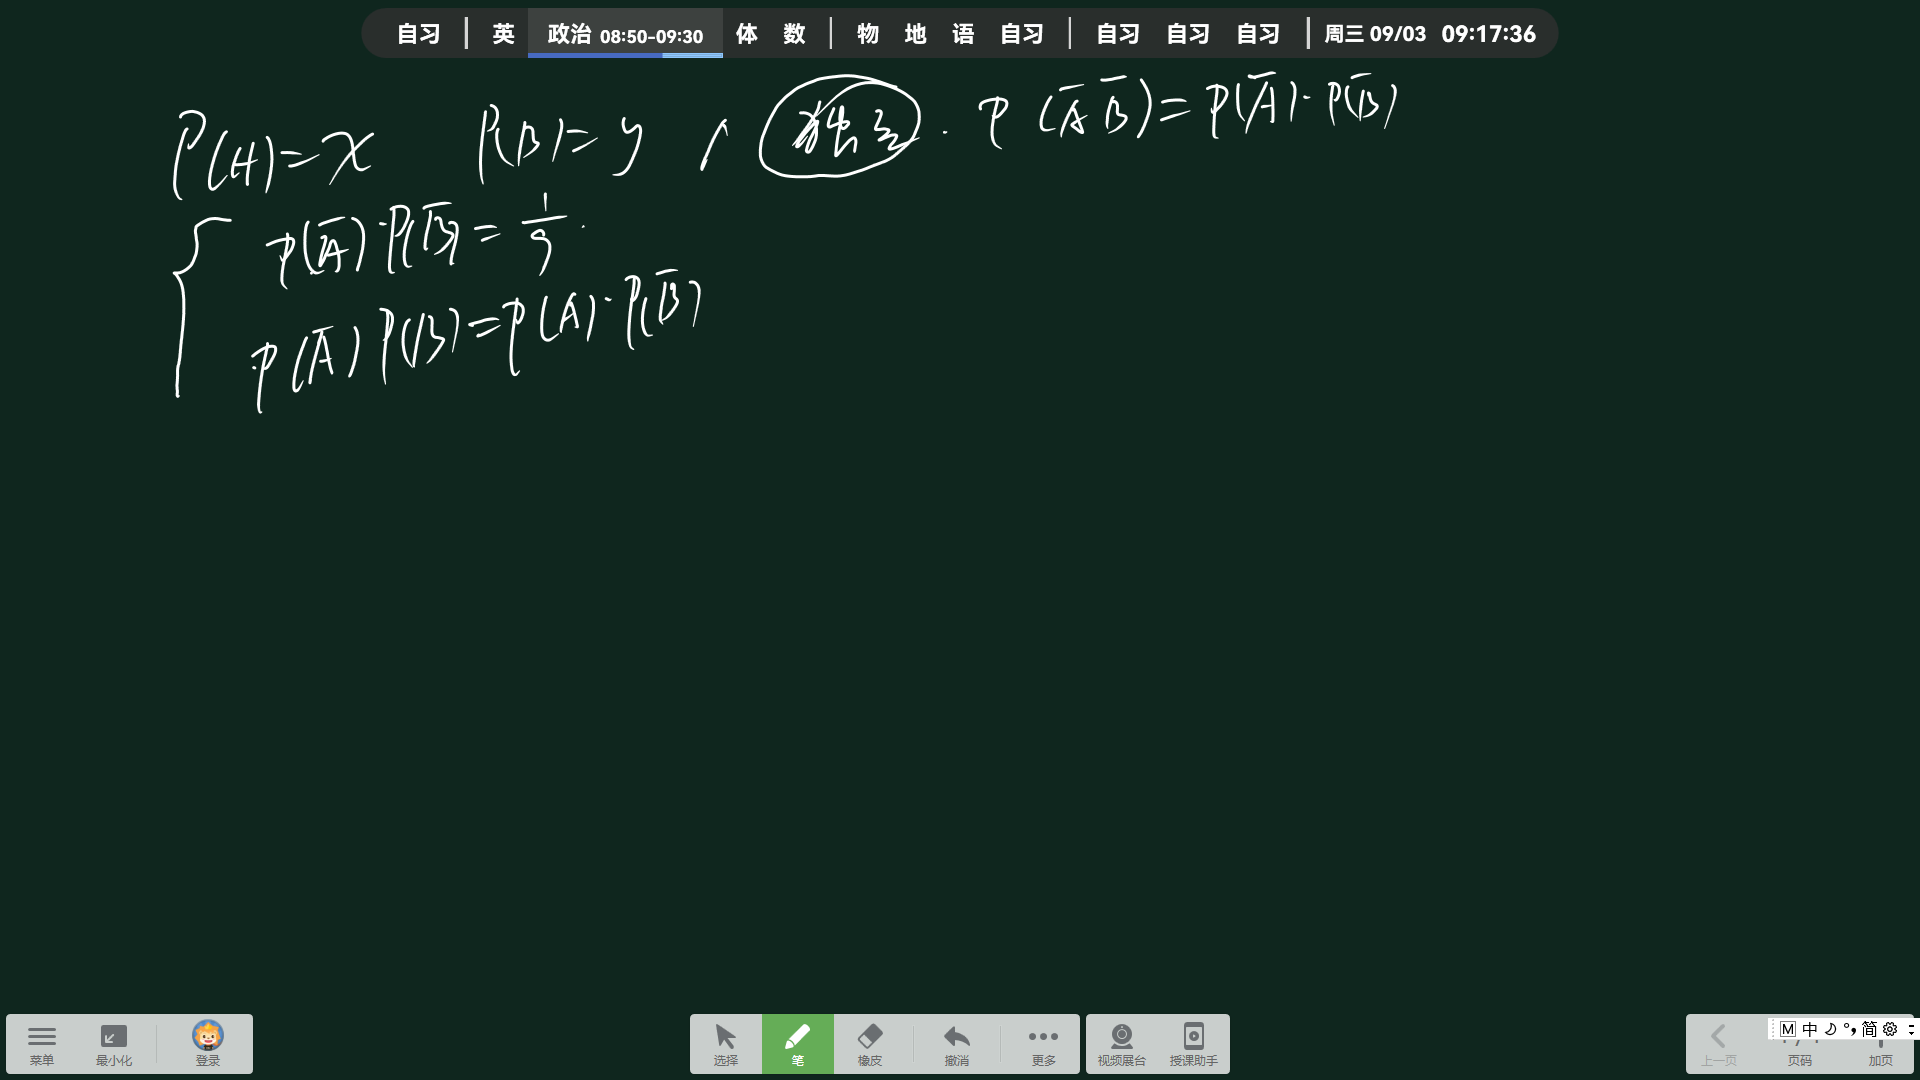 自习 | 英 政治 08:50-09:30 体 数 | 物 地 语 自习 | 自习 自习 自习 | 周三 09/03 09:17:36
P(A)=x P(B)=y , 独立. P(A̅ B̅)=P(A̅)·P(B̅)
P(A̅)·P(B̅)=1/9.
P(A̅)P(B)=P(A)·P(B̅)
菜单 最小化 登录 选择 笔 橡皮 撤消 更多 视频展台 授课助手 上一页 页码 加页
M 中 简